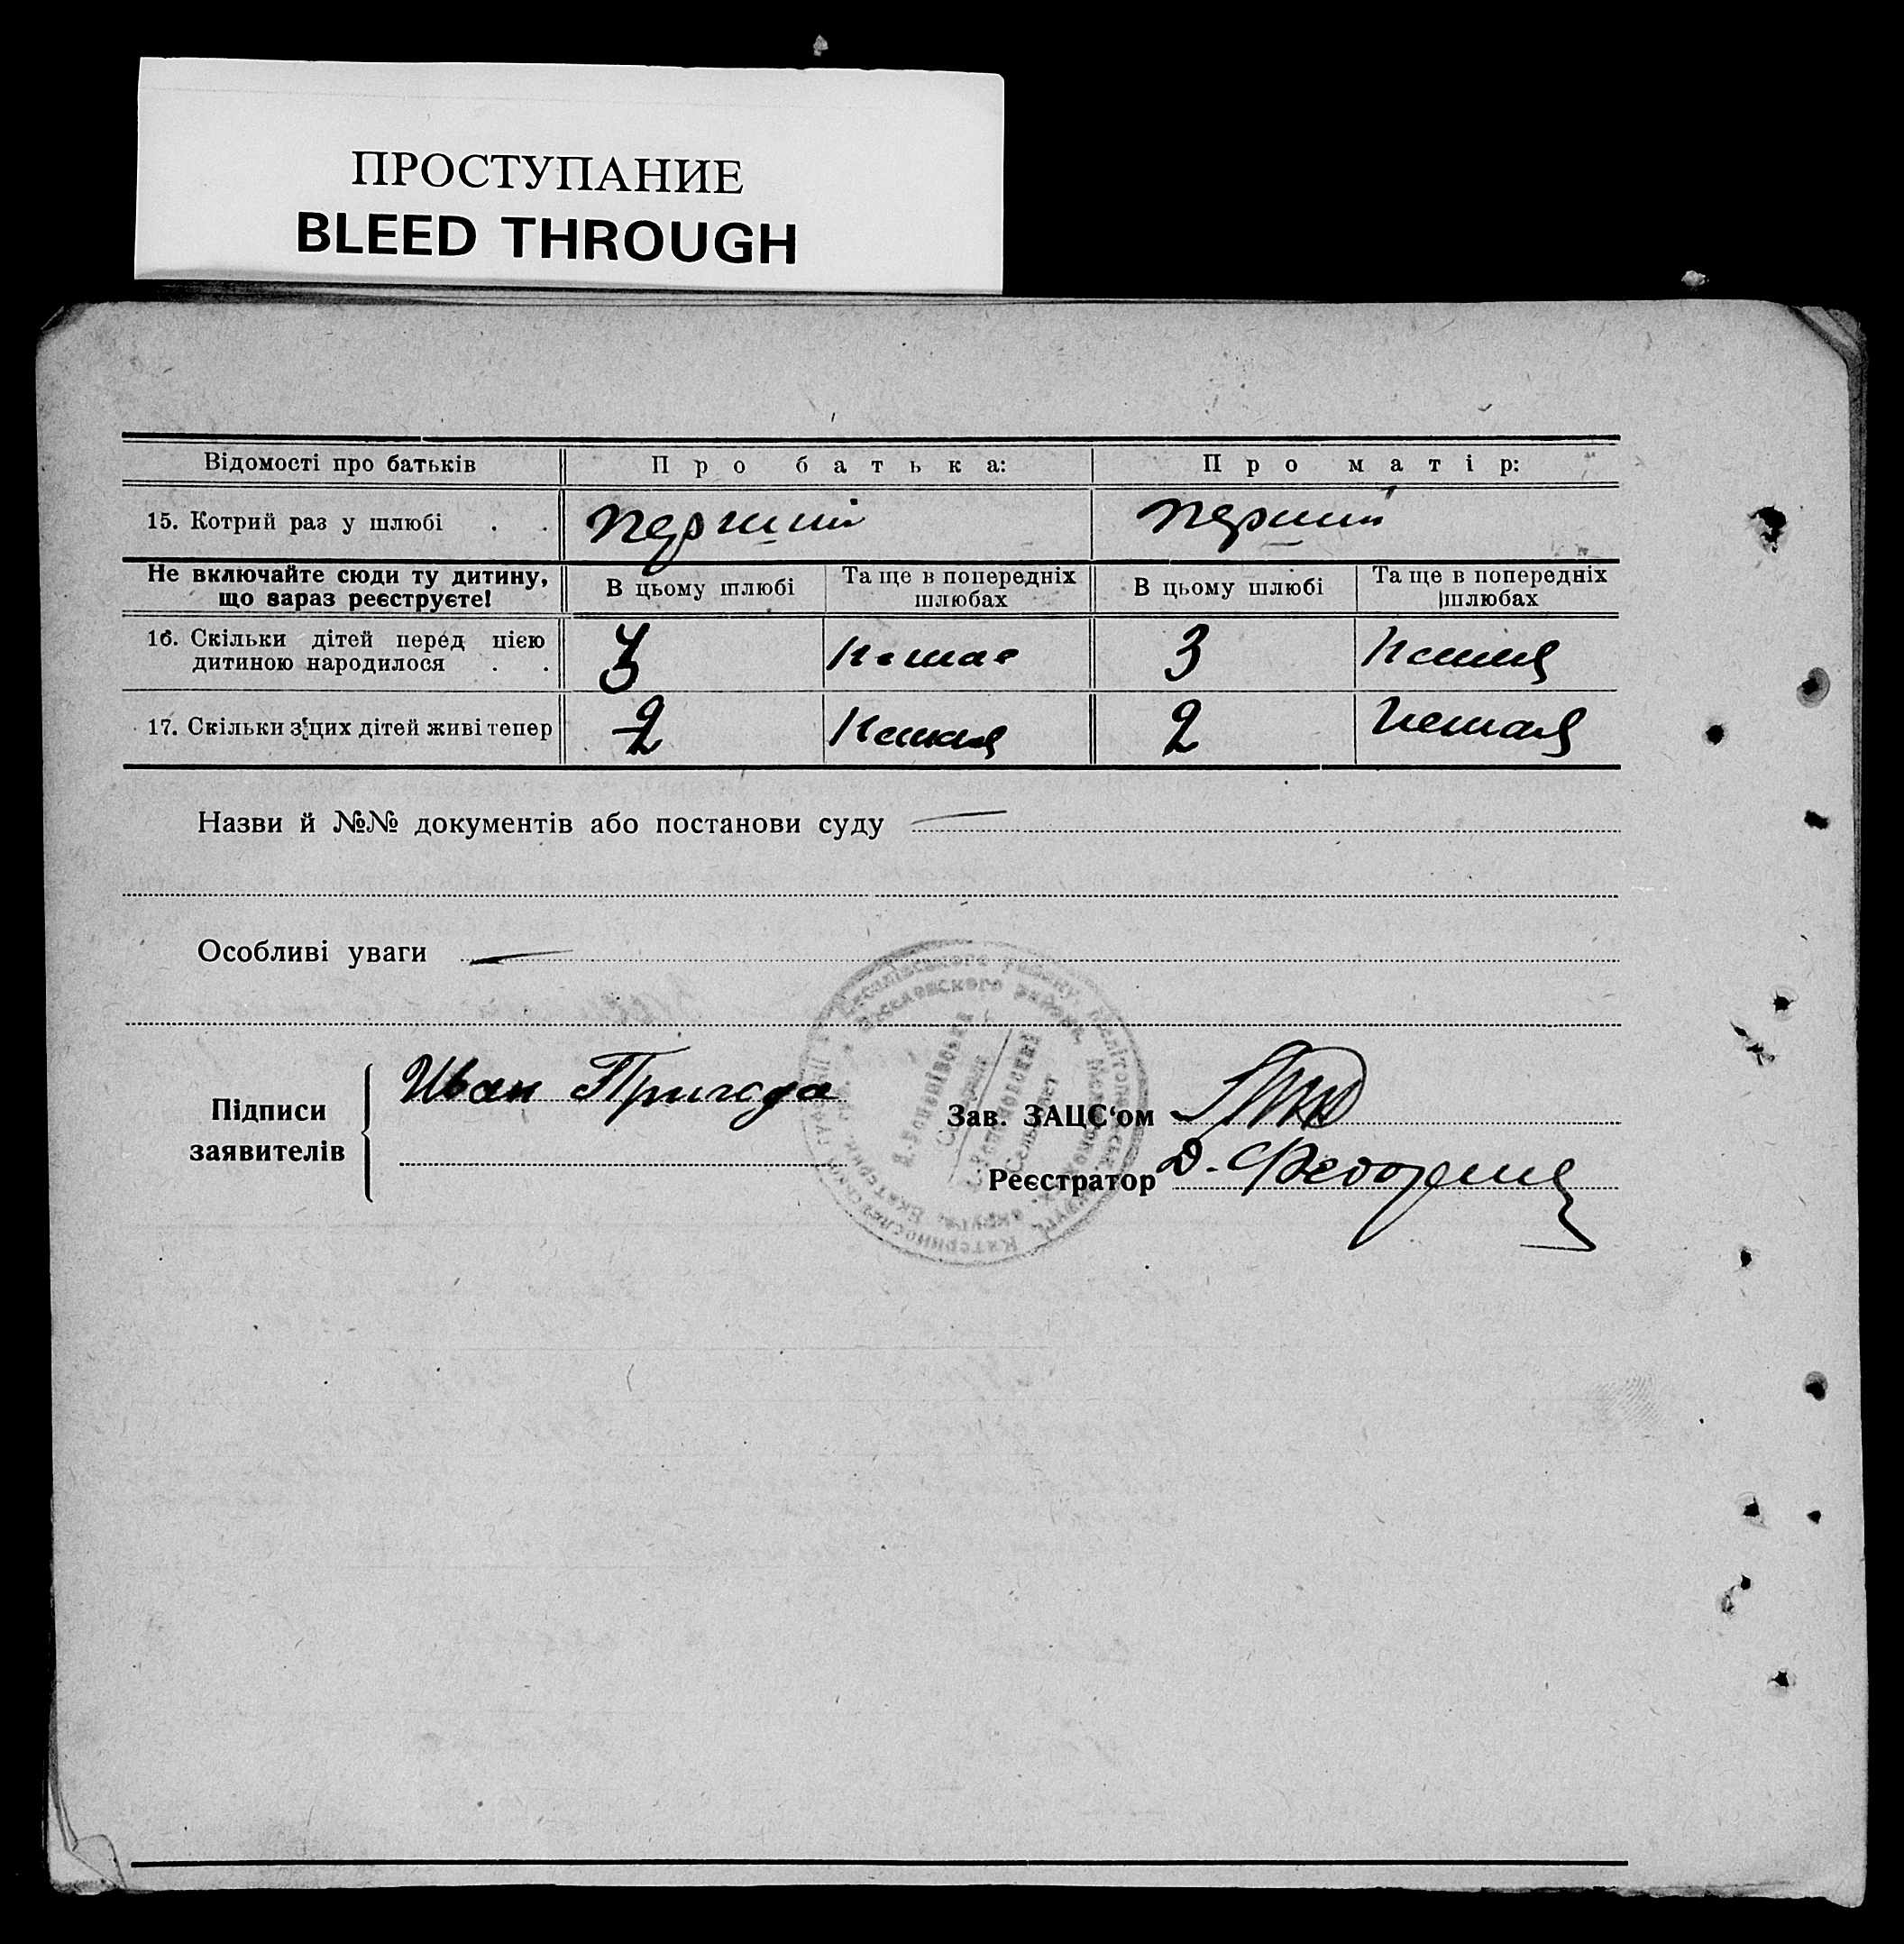 ПРОСТУПАНИЕ
BLEED THROUGH
Відомості про батьків
Про батька:
Про матір:
15. Котрий раз у шлюбі . .
перший
перший
Не включайте сюди ту дитину,
що зараз реєструєте!
В цьому шлюбі
Та ще в попередніх
шлюбах
В цьому шлюбі
Та ще в попередніх
шлюбах
16. Скільки дітей перед цією
дитиною народилося . .
3
немає
3
немає
17. Скільки з цих дітей живі тепер
2
немає
2
немає
Назви й №№ документів або постанови суду —
Особливі уваги —
Підписи
заявителів
Иван Пригода
Зав. ЗАЦС‘ом
Реєстратор
Д.